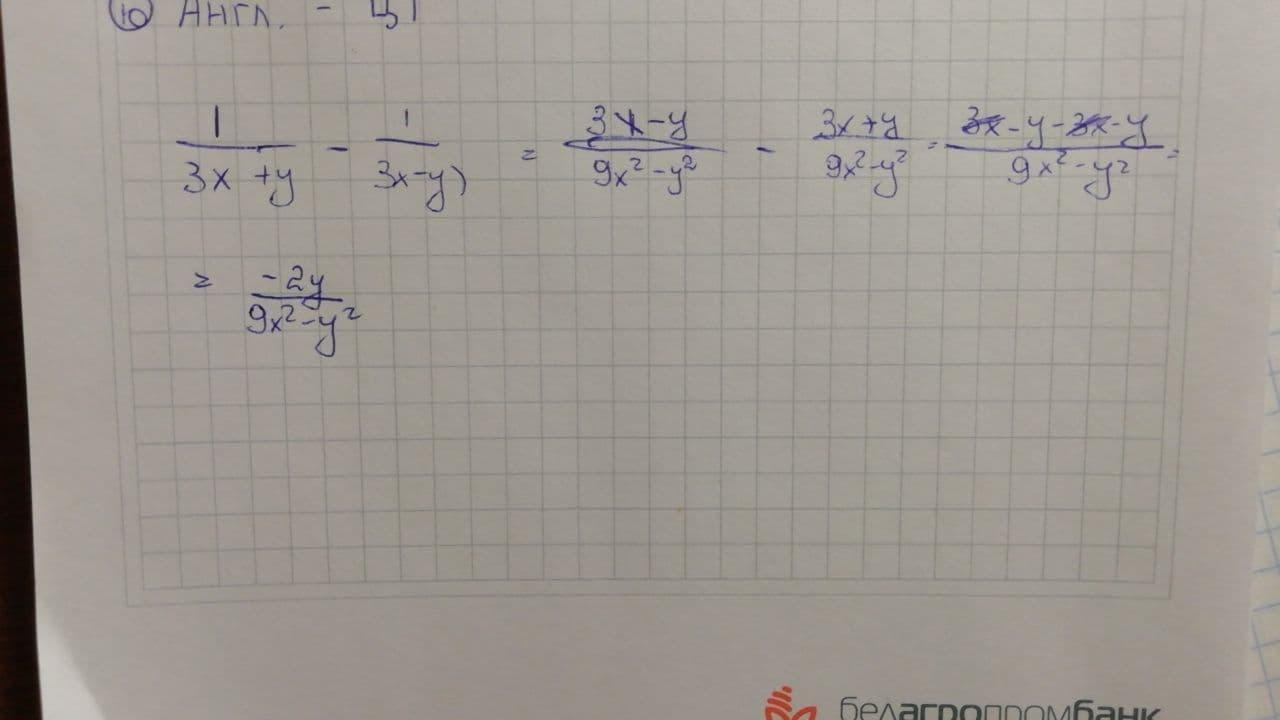 10 Англ. - ЦТ
1/(3x + y) - 1/(3x-y) = (3x-y)/(9x²-y²) - (3x+y)/(9x²-y²) = (3x-y-3x-y)/(9x²-y²) =
= -2y/(9x²-y²)
белагропромбанк